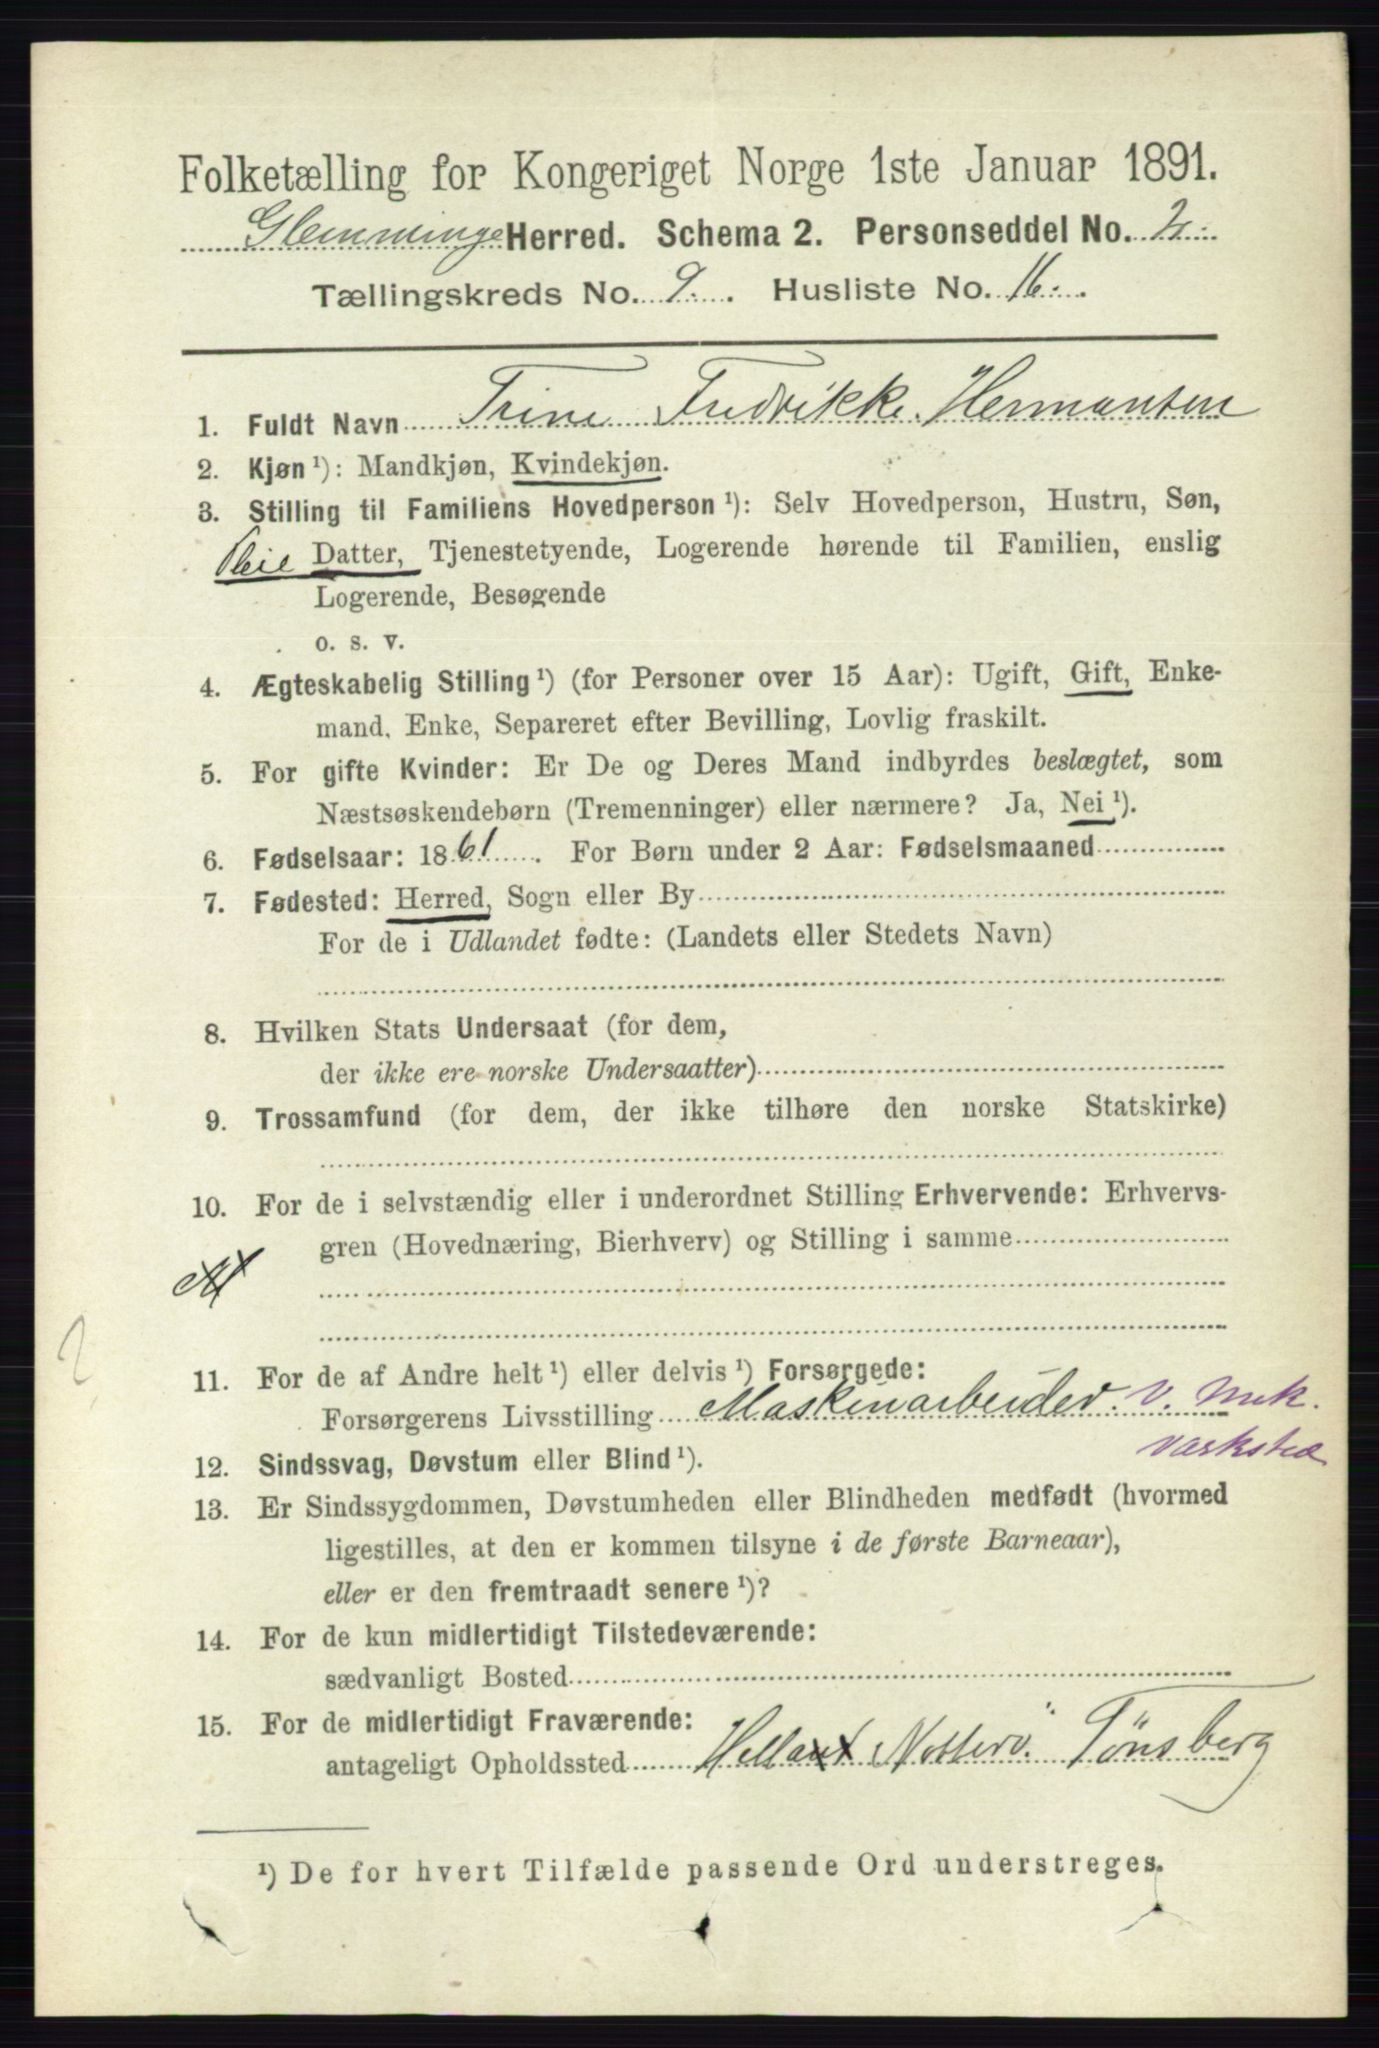 Folketælling for Kongeriget Norge 1ste Januar 1891.
Glemminge Herred. Schema 2. Personseddel No. 2.
Tællingskreds No. 9. Husliste No. 16.
1. Fuldt Navn Trine Fredrikke Hermansen
2. Kjøn ¹): Mandkjøn, Kvindekjøn.
3. Stilling til Familiens Hovedperson ¹): Selv Hovedperson, Hustru, Søn,
Pleie Datter, Tjenestetyende, Logerende hørende til Familien, enslig
Logerende, Besøgende
o. s. v.
4. Ægteskabelig Stilling ¹) (for Personer over 15 Aar): Ugift, Gift, Enke-
mand, Enke, Separeret efter Bevilling, Lovlig fraskilt.
5. For gifte Kvinder: Er De og Deres Mand indbyrdes beslægtet, som
Næstsøskendebørn (Tremenninger) eller nærmere? Ja, Nei ¹).
6. Fødselsaar: 1861. For Børn under 2 Aar: Fødselsmaaned
7. Fødested: Herred, Sogn eller By
For de i Udlandet fødte: (Landets eller Stedets Navn)
8. Hvilken Stats Undersaat (for dem,
der ikke ere norske Undersaatter)
9. Trossamfund (for dem, der ikke tilhøre den norske Statskirke)
10. For de i selvstændig eller i underordnet Stilling Erhvervende: Erhvervs-
gren (Hovednæring, Bierhverv) og Stilling i samme
11. For de af Andre helt ¹) eller delvis ¹) Forsørgede:
Forsørgerens Livsstilling Maskinarbeider. v. mek.
værksted
12. Sindssvag, Døvstum eller Blind ¹).
13. Er Sindssygdommen, Døvstumheden eller Blindheden medfødt (hvormed
ligestilles, at den er kommen tilsyne i de første Barneaar),
eller er den fremtraadt senere ¹)?
14. For de kun midlertidigt Tilstedeværende:
sædvanligt Bosted
15. For de midlertidigt Fraværende:
antageligt Opholdssted Nøtterø Tönsberg
¹) De for hvert Tilfælde passende Ord understreges.
2